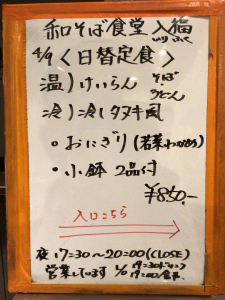 和そば食堂 入福
いり ふく
4/9 〈日替定食〉
温）けいらん そば・うどん
冷）冷しタヌキ風
・おにぎり（若菜わかめ）
・小鉢 2品付
¥850-
入口こちら
夜 17=30〜20=00(CLOSE)
営業しています 19=30
19=00